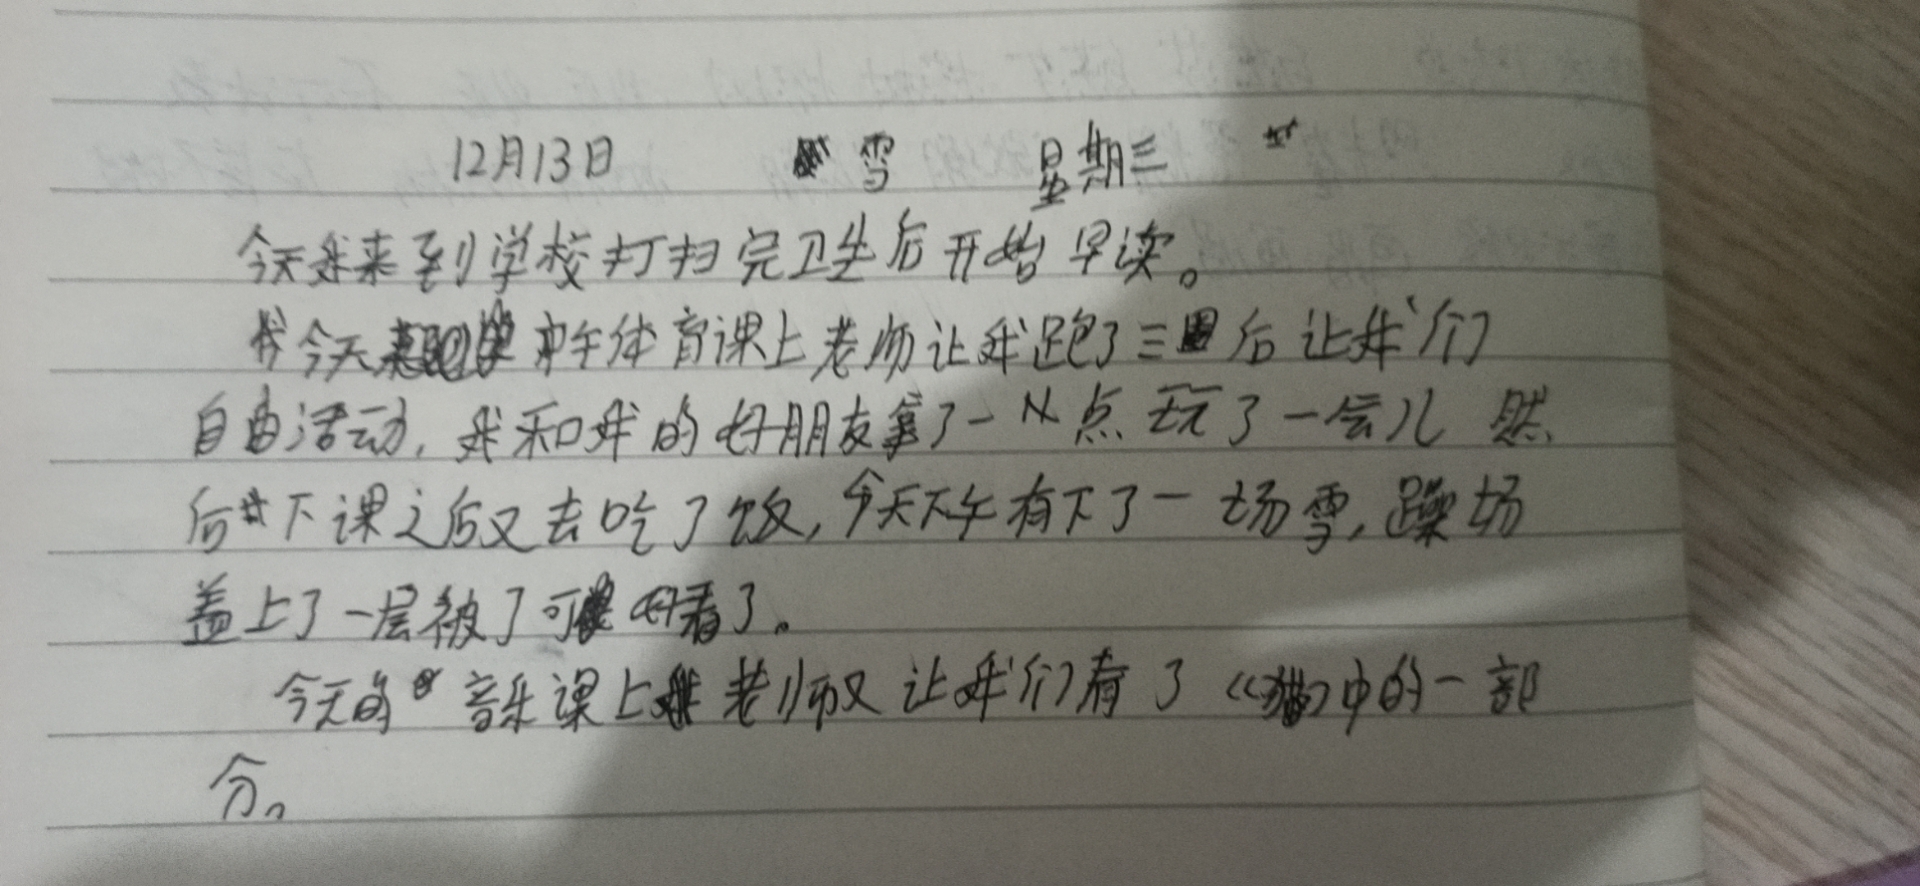 12月13日 雪 星期三
今天我来到学校打扫完卫生后开始早读。
今天中午体育课上老师让我跑了三圈后让我们
自由活动,我和我的好朋友拿了一从点玩了一会儿 然
后下课之后又去吃了饭,今天下午有下了一场雪,躁场
盖上了一层被了可好看了。
今天的音乐课上老师又让我们看了《猫》中的一部
分。